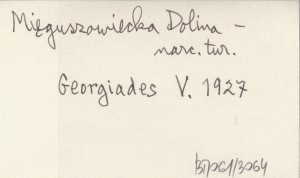 Mięguszowiecka Dolina –
narc. tur.
Georgiades V. 1927
BP/061/3064